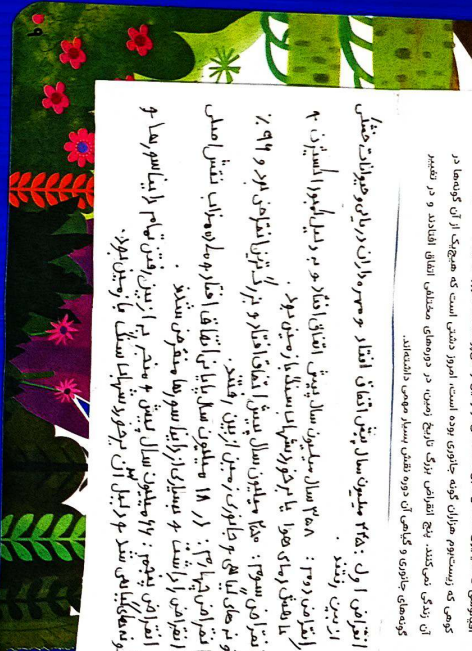 کوهی که زیست‌بوم هزاران گونه جانوری بوده است، امروز دشتی است که هیچ‌یک از آن گونه‌ها در
آن زندگی نمی‌کنند. پنج انقراض بزرگ تاریخ زمین، در دوره‌های مختلفی اتفاق افتادند و در تغییر
گونه‌های جانوری و گیاهی آن دوره نقش بسیار مهمی داشته‌اند.
انقراض اول: ۴۴۵ میلیون سال پیش اتفاق افتاد و مهره داران دریایی و حیوانات خشکی
از بین رفتند.
انقراض دوم: ۳۵۸ سال میلیون سال پیش اتفاق افتاد و بر دلیل کمبود اکسیژن
کاهش دمای هوا یا برخورد شهاب سنگ با زمین بود.
انقراض سوم: ۲۵۰ میلیون سال پیش اتفاق افتاد و بزرگترین انقراض بود و ۹۶٪
گونه های گیاهی و جانوری زمین از بین رفتند.
انقراض چهارم: در ۱۸ میلیون سال پایانی اتفاق افتاد و مواد مذاب نقش اصلی
انقراض را داشت و بسیاری از دایناسورها منقرض شدند.
انقراض پنجم: ۶۶ میلیون سال پیش و منجر به از بین رفتن تمام دایناسورها و
گونه‌های گیاهی شد و دلیل آن برخورد شهاب سنگ با زمین بود.